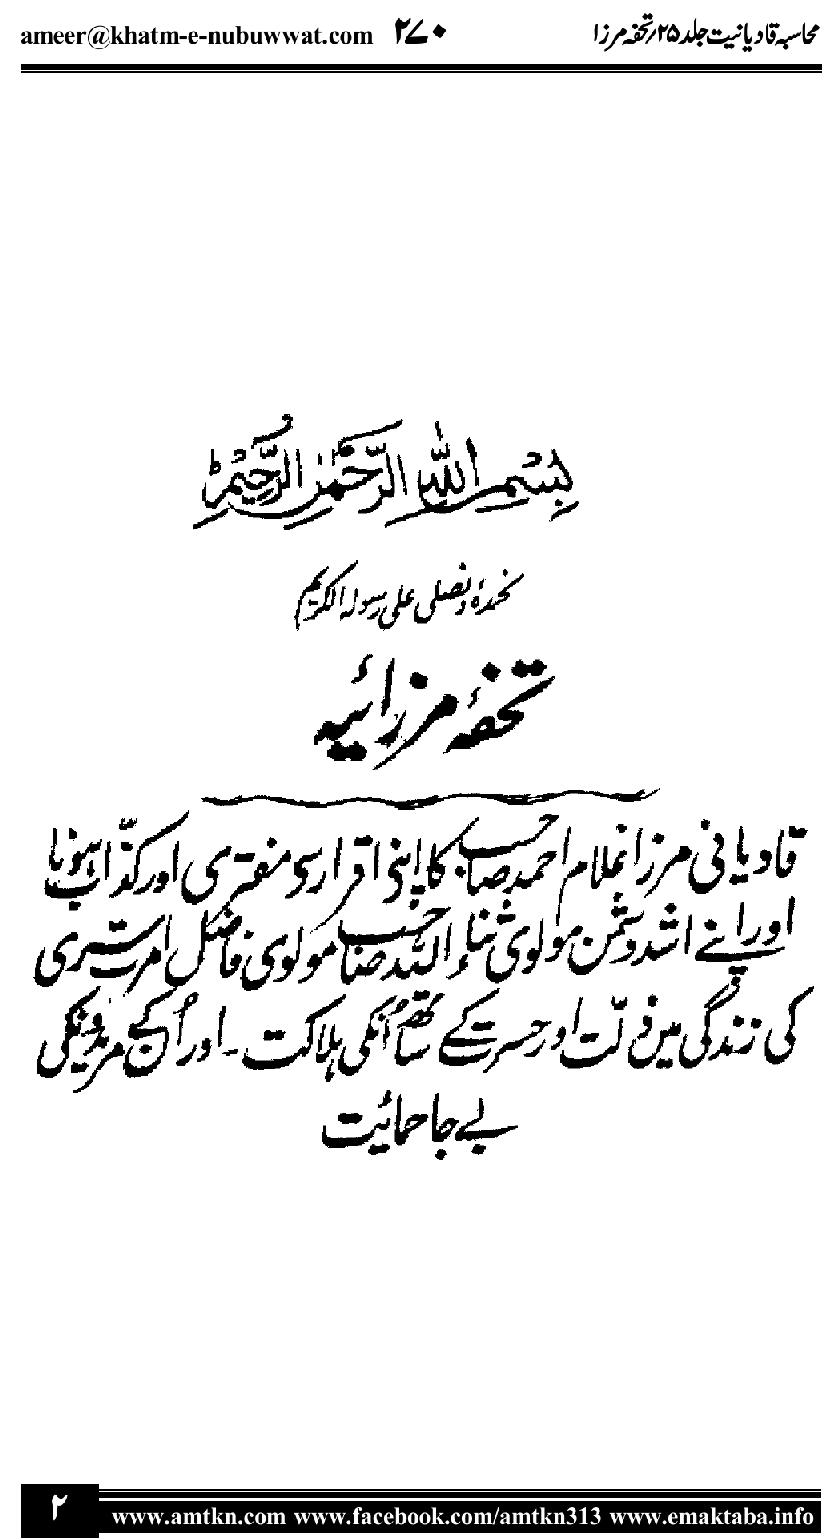 محاسبہ قادیانیت جلد ۲۵؍تحفہ مرزا ۲۷۰ ameer@khatm-e-nubuwwat.com
بِسْمِ اللّٰهِ الرَّحْمٰنِ الرَّحِيْمِ
نحمدہٗ و نصلی علی رسولہ الکریم
تحفۂ مرزائیہ
قادیانی مرزا غلام احمد صاحب کا اپنی اقرار سی مفتری اور کذّاب ہونا
اور اپنے اشد دشمن مولوی ثناء اللہ صاحب مولوی فاضل امرت سری
کی زندگی میں ذلّت اور حسرت کے ساتھ اُنکی ہلاکت۔ اور اُن کے مریدونکی
بے جا حمائیت
۲ www.amtkn.com www.facebook.com/amtkn313 www.emaktaba.info